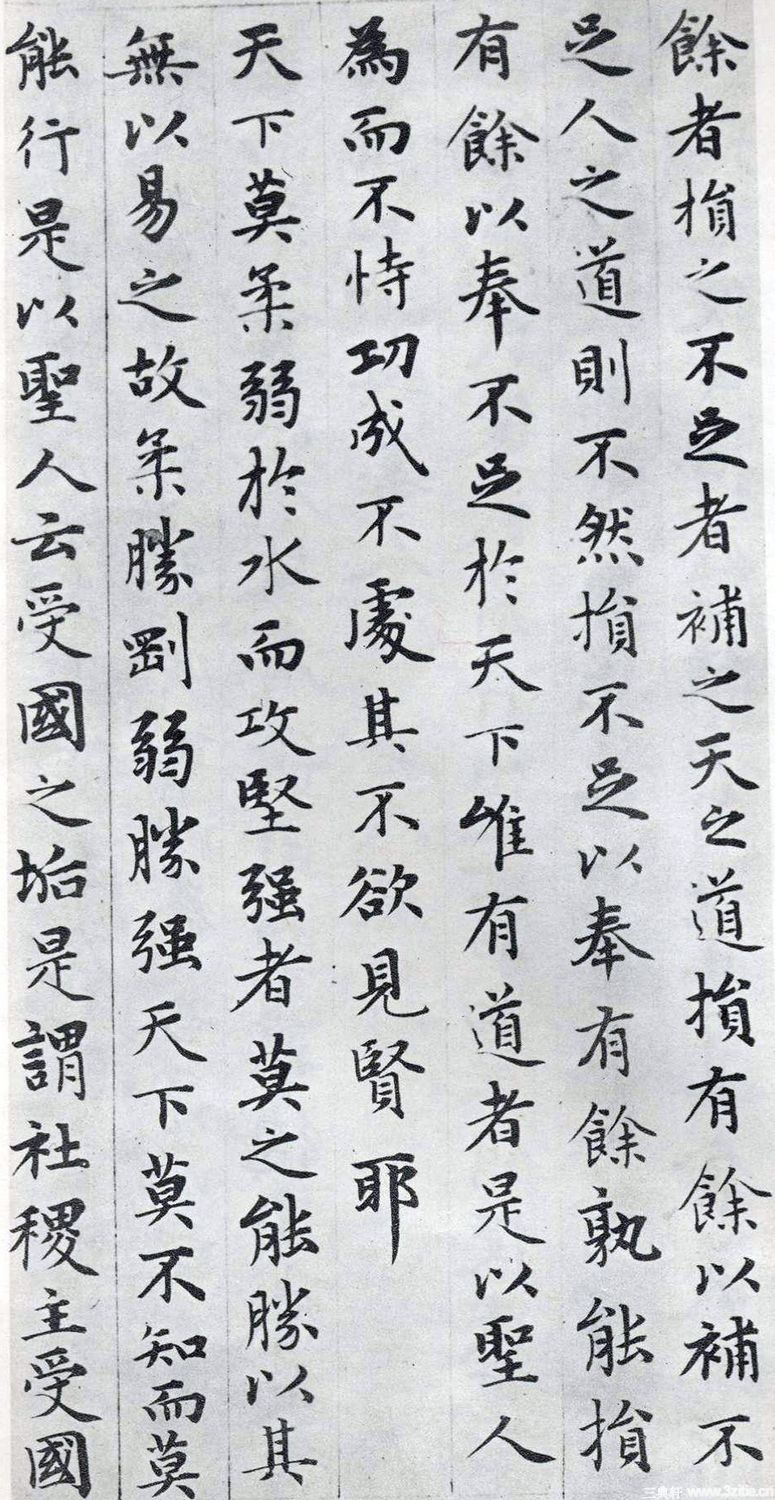 餘者損之不足者補之天之道損有餘以補不
足人之道則不然損不足以奉有餘孰能損
有餘以奉不足於天下唯有道者是以聖人
為而不恃功成不處其不欲見賢耶
天下莫柔弱於水而攻堅强者莫之能勝以其
無以易之故柔勝剛弱勝强天下莫不知而莫
能行是以聖人云受國之垢是謂社稷主受國
三典軒 www.3zitie.cn